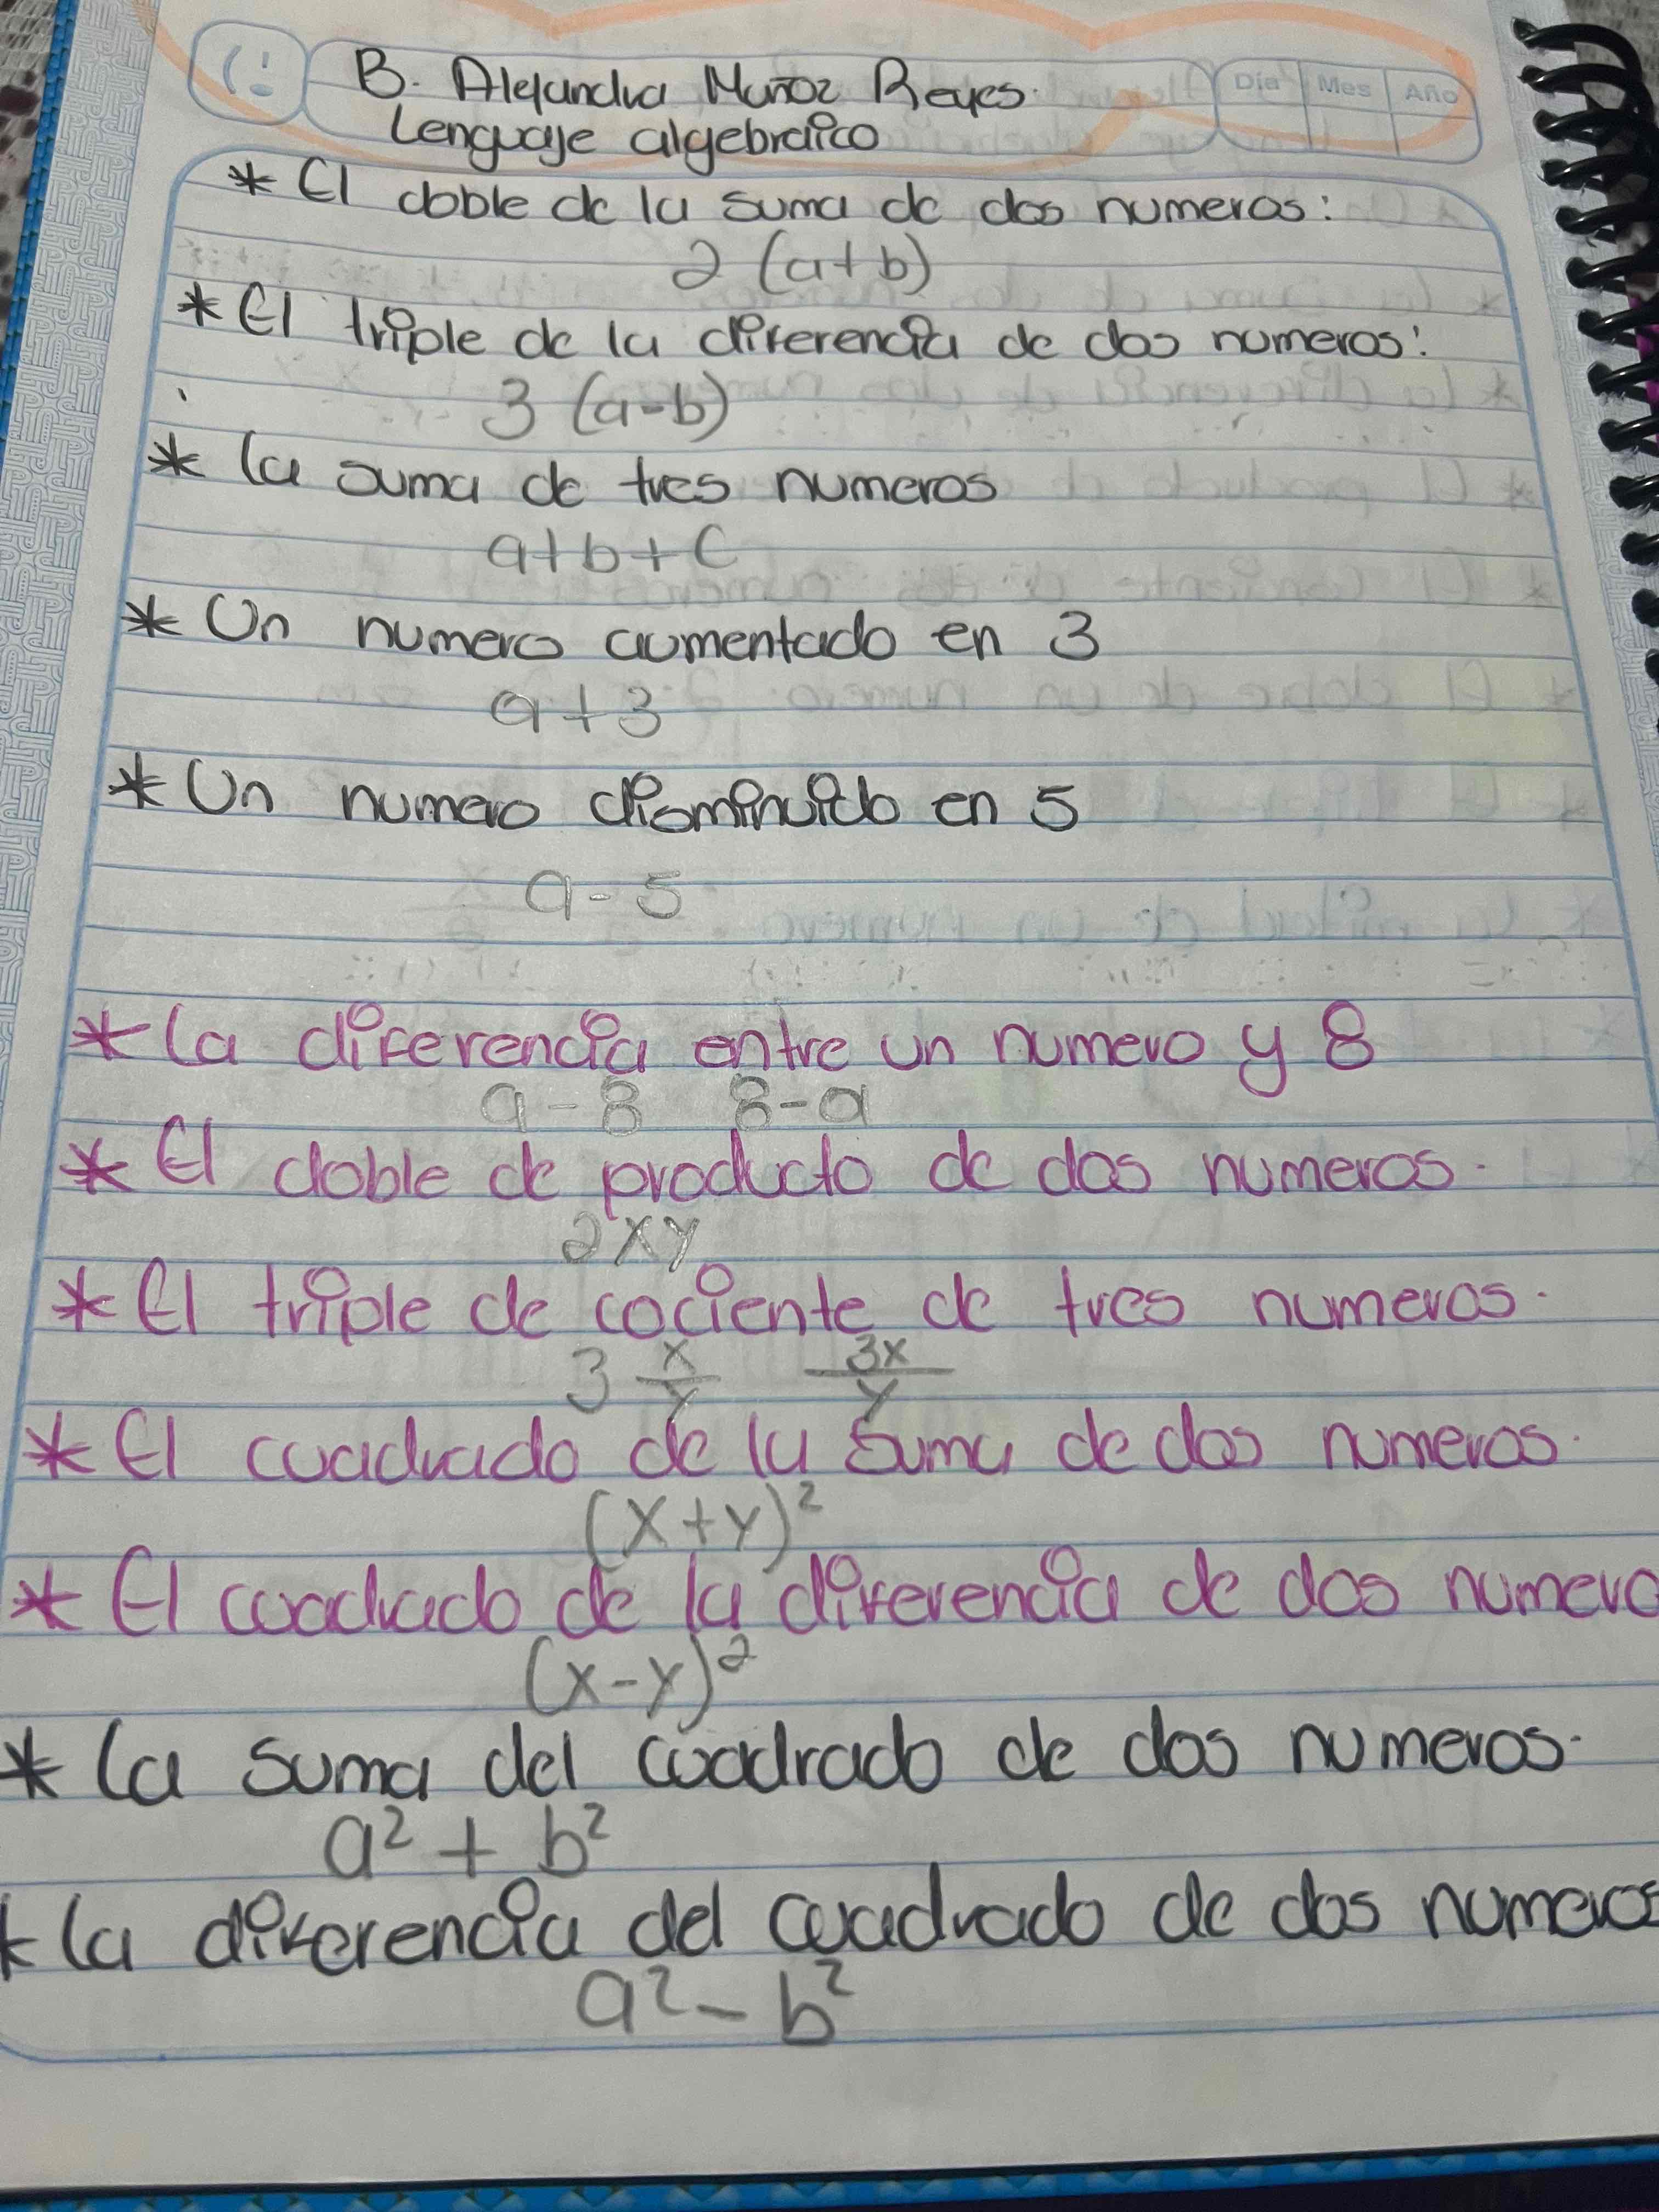 B. Alejandra Muñoz Reyes.
Día Mes Año
Lenguaje algebraico
* El doble de la suma de dos numeros:
2 (a+b)
* El triple de la diferencia de dos numeros:
3 (a-b)
* La suma de tres numeros
a+b+c
* Un numero aumentado en 3
a+3
* Un numero disminuido en 5
a-5
* La diferencia entre un numero y 8
a-8 8-a
* El doble de producto de dos numeros.
2xy
* El triple de cociente de tres numeros.
3 x/y 3x/y
* El cuadrado de la suma de dos numeros.
(x+y)²
* El cuadrado de la diferencia de dos numero
(x-y)²
* La suma del cuadrado de dos numeros.
a² + b²
* La diferencia del cuadrado de dos numeros
a² - b²